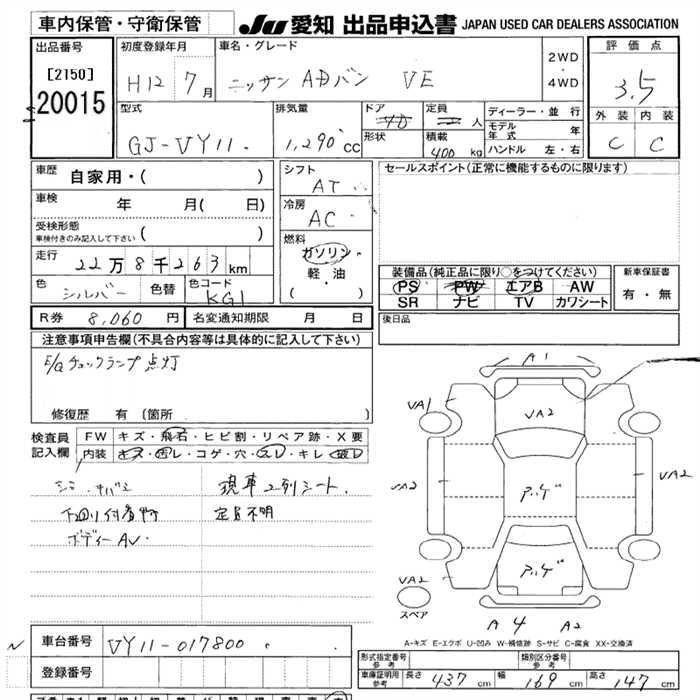 車内保管・守衛保管
JU 愛知 出品申込書 JAPAN USED CAR DEALERS ASSOCIATION
出品番号
[2T50]
20015
初度登録年月
H12 7月
車名・グレード
ニッサン ADバン VE
2WD
・
4WD
評価点
3.5
外装 内装
C C
型式
GJ-VY11
排気量
1,290cc
ドア
4D
形状
定員
人
積載
400 kg
ディーラー・並行
モデル年式 年
ハンドル 左・右
車歴
自家用・( )
車検
年 月( 日)
受検形態
車検付きのみ記入して下さい ( )
走行
22万8千263km
色
シルバー
色替
色コード
KG1
シフト
AT
冷房
AC
燃料
ガソリン
軽・油
( )
セールスポイント(正常に機能するものに限ります)
装備品(純正品に限り○をつけてください)
PS PW エアB AW
SR ナビ TV カワシート
新車保証書
有・無
R券 8,060円
名変通知期限 月 日
後日品
注意事項申告欄(不具合内容等は具体的に記入して下さい)
E/Gチェックランプ点灯
修復歴 有(箇所 )
検査員記入欄
FW キズ・飛石・ヒビ割・リペア跡・X要
内装 キズ・汚レ・コゲ・穴・スレ・キレ・破レ
現車2列シート
定員不明
ボディーAU
A1
VA1
VA2
VA2
VA2
アゲ
アゲ
VA2
スペア
A 4 A2
A-キズ E-エクボ U-凹み W-補修跡 S-サビ C-腐食 XX-交換済
車台番号
VY11-017800
登録番号
形式指定番号 参考
類別区分番号 参考
車庫証明用 参考
長さ 437cm 幅 169cm 高さ 147cm